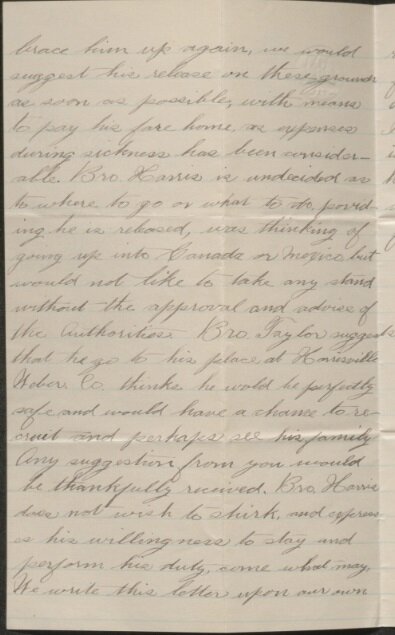 brace him up again, we would
suggest his release on these grounds
as soon as possible, with means
to pay his fare home, as expenses
during sickness has been consider-
able. Bro. Harris is undecided as
to where to go or what to do, povid-
ing he is released, was thinking of
going up into Canada or Mexico but
would not like to take any stand
without the approval and advise of
the Authorities. Bro. Taylor suggests
that he go to his place at Harrisville
Weber Co. thinks he wold be perfectly
safe and would have a chance to re-
cruit and perhaps see his family
Any suggestion from you would
be thankfully received. Bro. Harris
does not wish to shirk, and express
es his willingness to stay and
perform his duty, come what may.
We write this letter upon our own